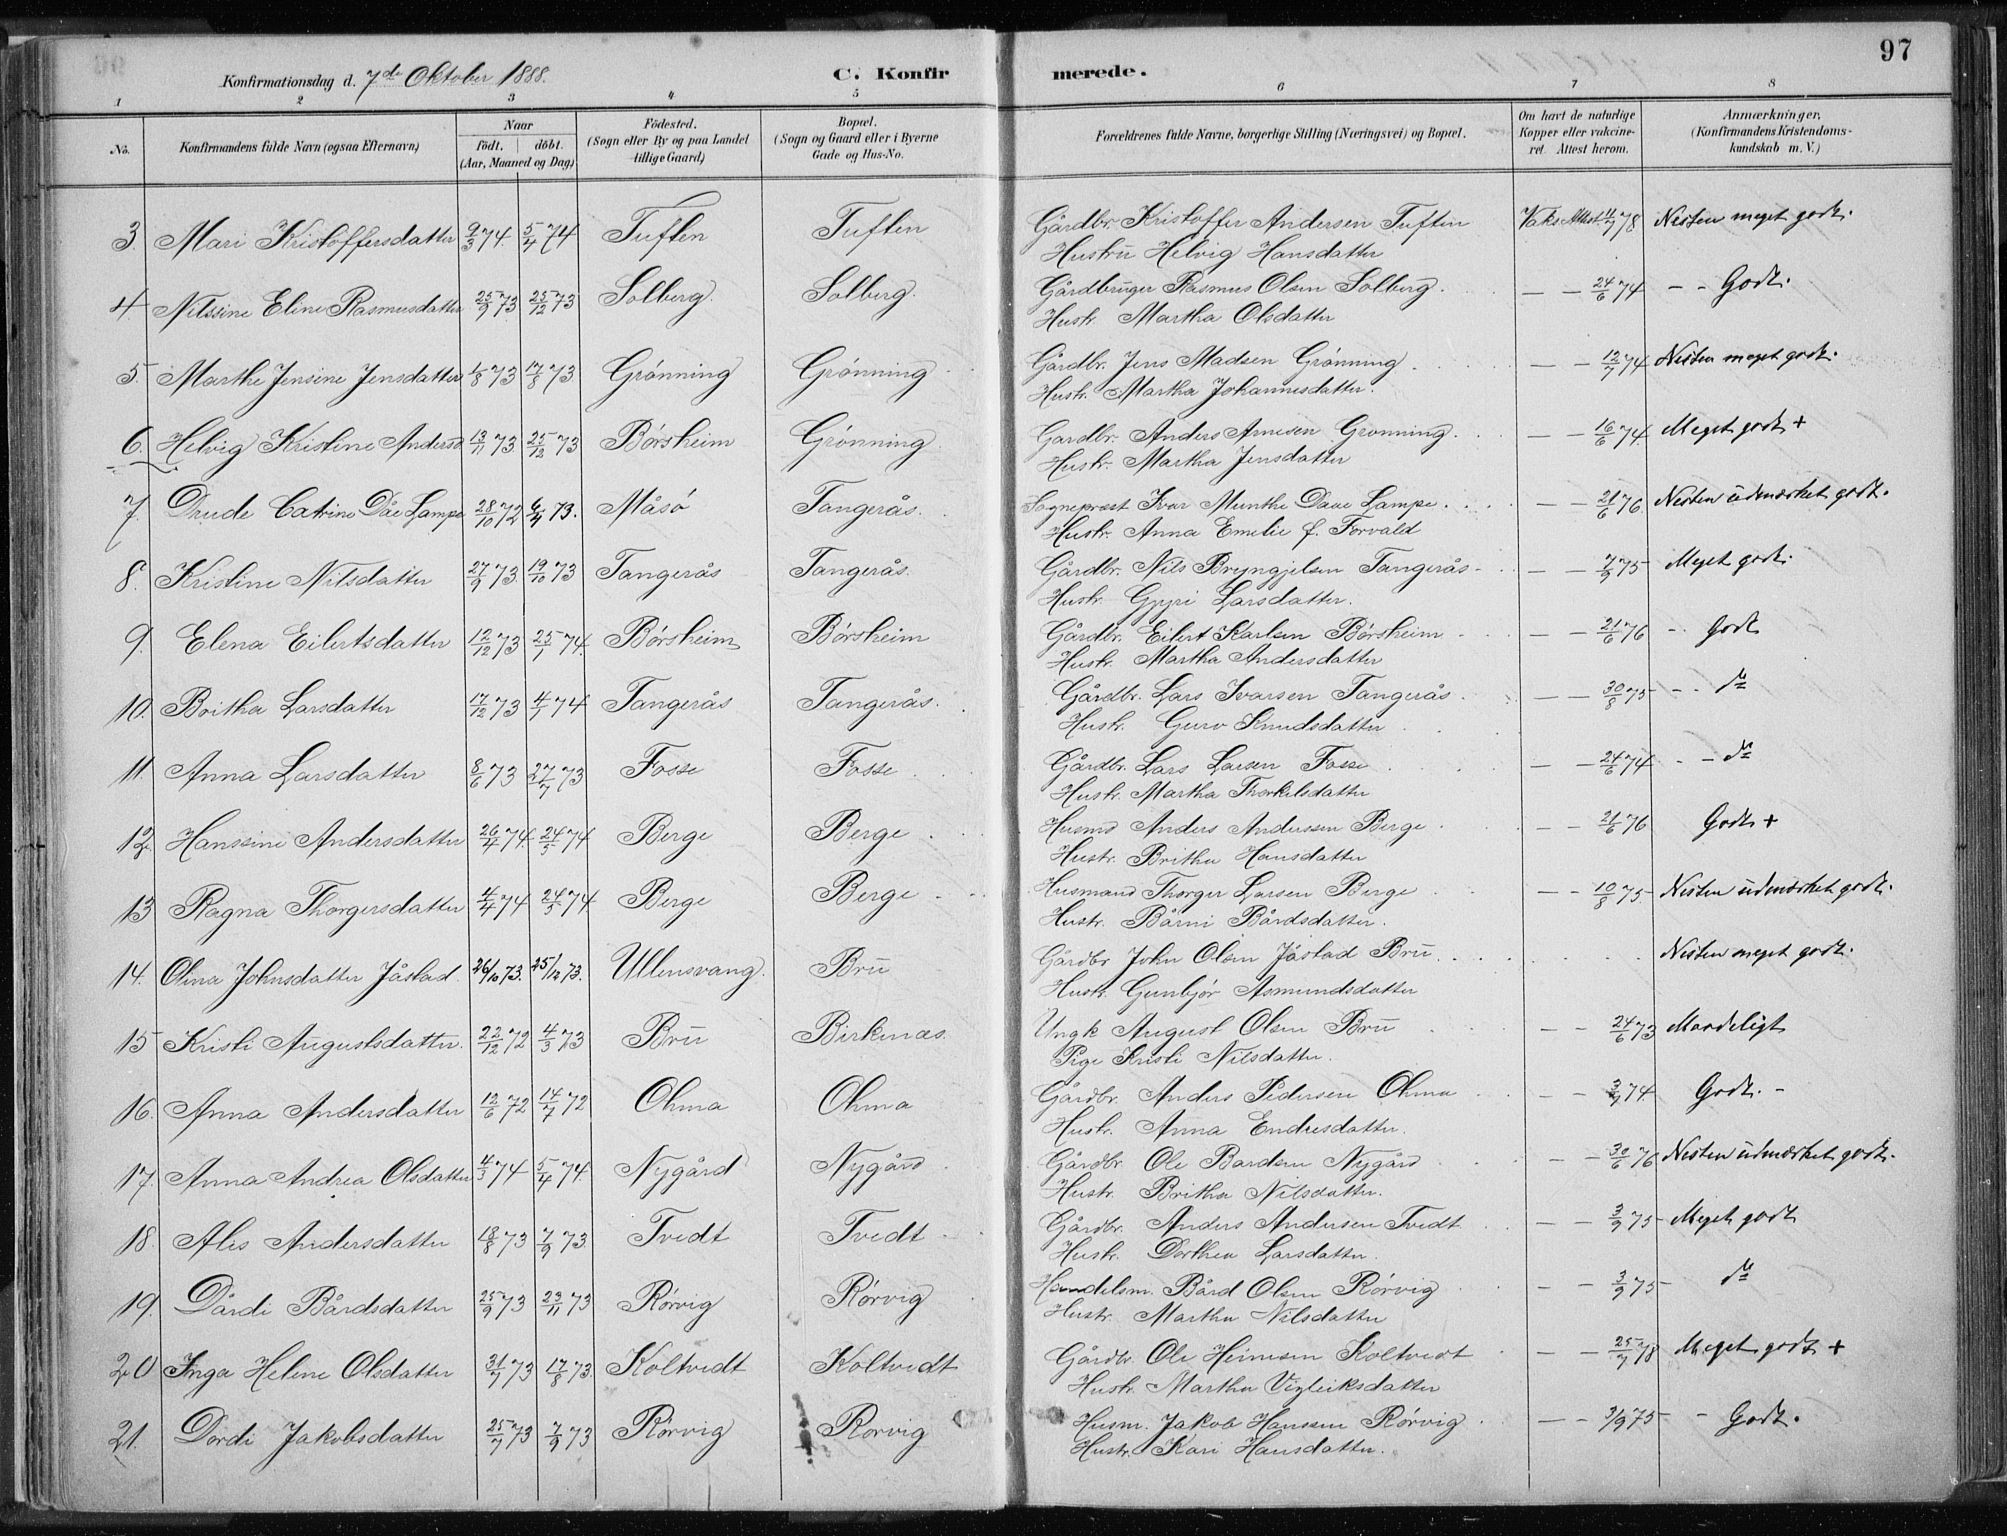 97
Konfirmationsdag d. 7de Oktober 1888. C. Konfirmerede.
1 2 3 4 5 6 7 8
No. Konfirmandens fulde Navn (ogsaa Efternavn) Naar født. døbt. (Aar, Maaned og Dag) Fødested. (Sogn eller By og paa Landet tillige Gaard) Bopæl. (Sogn og Gaard eller i Byerne Gade og Hus-No. Forældrenes fulde Navne, borgerlige Stilling (Næringsvei) og Bopæl. Om havt de naturlige Kopper eller vakcineret. Attest herom. Anmærkninger, (Konfirmandens Kristendomskundskab m. V.)
3. Mari Kristoffersdatter 9/3 74 5/4 74 Tuften Tuften Gårdbr. Kristoffer Andersen Tuften Vaks. Attest 11/7 78 Nesten meget godt.
Hustru Helvig Hansdatter
4 Nilssine Eline Rasmusdatter 25/9 73 25/12 73 Solberg Solberg. Gårdbruger Rasmus Olsen Solberg. — — 24/6 74 - - Godt.
Hustr. Martha Olsdatter
5. Marthe Jensine Jensdatter 1/8 73 17/8 73. Grønning Grønning Gårdbr. Jens Madsen Grønning — — 12/7 74 Nesten meget godt.
Hustr. Martha Johannesdatter.
6. Helvig Kristine Andersd. 13/11 73 25/12 73 Børsheim Grønning Gardbr. Anders Arnesen Grønning. — — 16/6 74 Meget godt +
Hustr. Martha Jensdatter
7. Drude Catrine Dåe Lampe 28/10 72 6/4 73. Måsø Tangerås. Sognepræst Ivar Munthe Daae Lampe. — — 21/6 76. Nesten udmærket godt.
Hustr. Anna Emelie f. Forvald
8. Kristine Nilsdatter 27/9 73 19/10 73 Tangerås Tangerås. Gårdbr. Nils Bryngjelsen Tangerås - — — 7/9 75 Meget godt.
Hustr. Gyri Larsdatter.
9. Elena Eilertsdatter 12/12 73 25/1 74. Børsheim Børsheim Gårdbr. Eilert Karlsen Børsheim — — 21/6 76 - Godt
Hustr. Martha Andersdatter
10. Britha Larsdatter 17/12 73 4/1 74 Tangerås Tangerås. Gårdbr. Lars Ivarsen Tangerås — — 30/8 75 - - do
Hustr. Guro Knudsdatter
11. Anna Larsdatter 8/6 73 27/7 73 Fosse Fosse Gårdbr. Lars Larsen Fosse — — 24/6 74 - - do
Hustr. Martha Thorkelsdatter
12. Hanssine Andersdatter 26/4 74 24/5 74 Berge Berge Husmd Anders Anderssen Berge — — 21/6 76 Godt +
Hustr. Britha Hansdatter
13 Ragna Thorgersdatter 4/4 74 24/5 74 Berge Berge Husmand Thorger Larsen Berge — — 10/8 75 Nesten udmærket godt.
Hustr. Bårni Bårdsdatter.
14. Olina Johnsdatter Jåstad. 26/10 73. 25/12 73. Ullensvang. Bru Gårdbr John Olsen Jåstad Bru. Nesten meget godt.
Hustr. Gunbjør Asmundsdatter
15 Kristi Augustsdatter. 22/12 72 4/3 73 Bru Birkenæs. Ungk August Olsen Bru — — 24/6 73 Maadeligt
Pige Kristi Nilsdatter.
16. Anna Andersdatter 12/6 72 14/7 72 Ohma Ohma Gårdbr. Anders Pedersen Ohma — — 3/7 74 Godt. -
Hustr. Anna Endresdatter.
17. Anna Andrea Olsdatter 4/3 74 5/4 74. Nygård Nygård Gårdbr. Ole Bardsen Nygård — — 30/6 76 Nesten udmærket godt.
Hustr. Britha Nilsdatter.
18. Alis Andersdatter 18/8 73 7/9 73. Tvedt Tvedt Gårdbr. Anders Andersen Tvedt — — 3/9 75 - Meget godt
Hustr. Dorthea Larsdatter.
19. Dårdi Bårdsdatter 25/9 73 23/11 73 Rørvig Rørvig Handelsm. Bård Olsen Rørvig — — 3/9 75 - do
Hustr. Martha Nilsdatter
20 Inga Helene Olsdatter 31/7 73 17/8 73. Koltvedt Koltvedt Gårdbr. Ole Heinesen Koltvedt — — 25/7 78 Meget godt +
Hustr. Martha Vigleiksdatter
21. Dordi Jakobsdatter 25/7 73 7/9 73 Rørvig Rørvig Husm. Jakob Hanssen Rørvig — — 3/9 75 - - Godt.
Hustr. Kari Hansdatter.